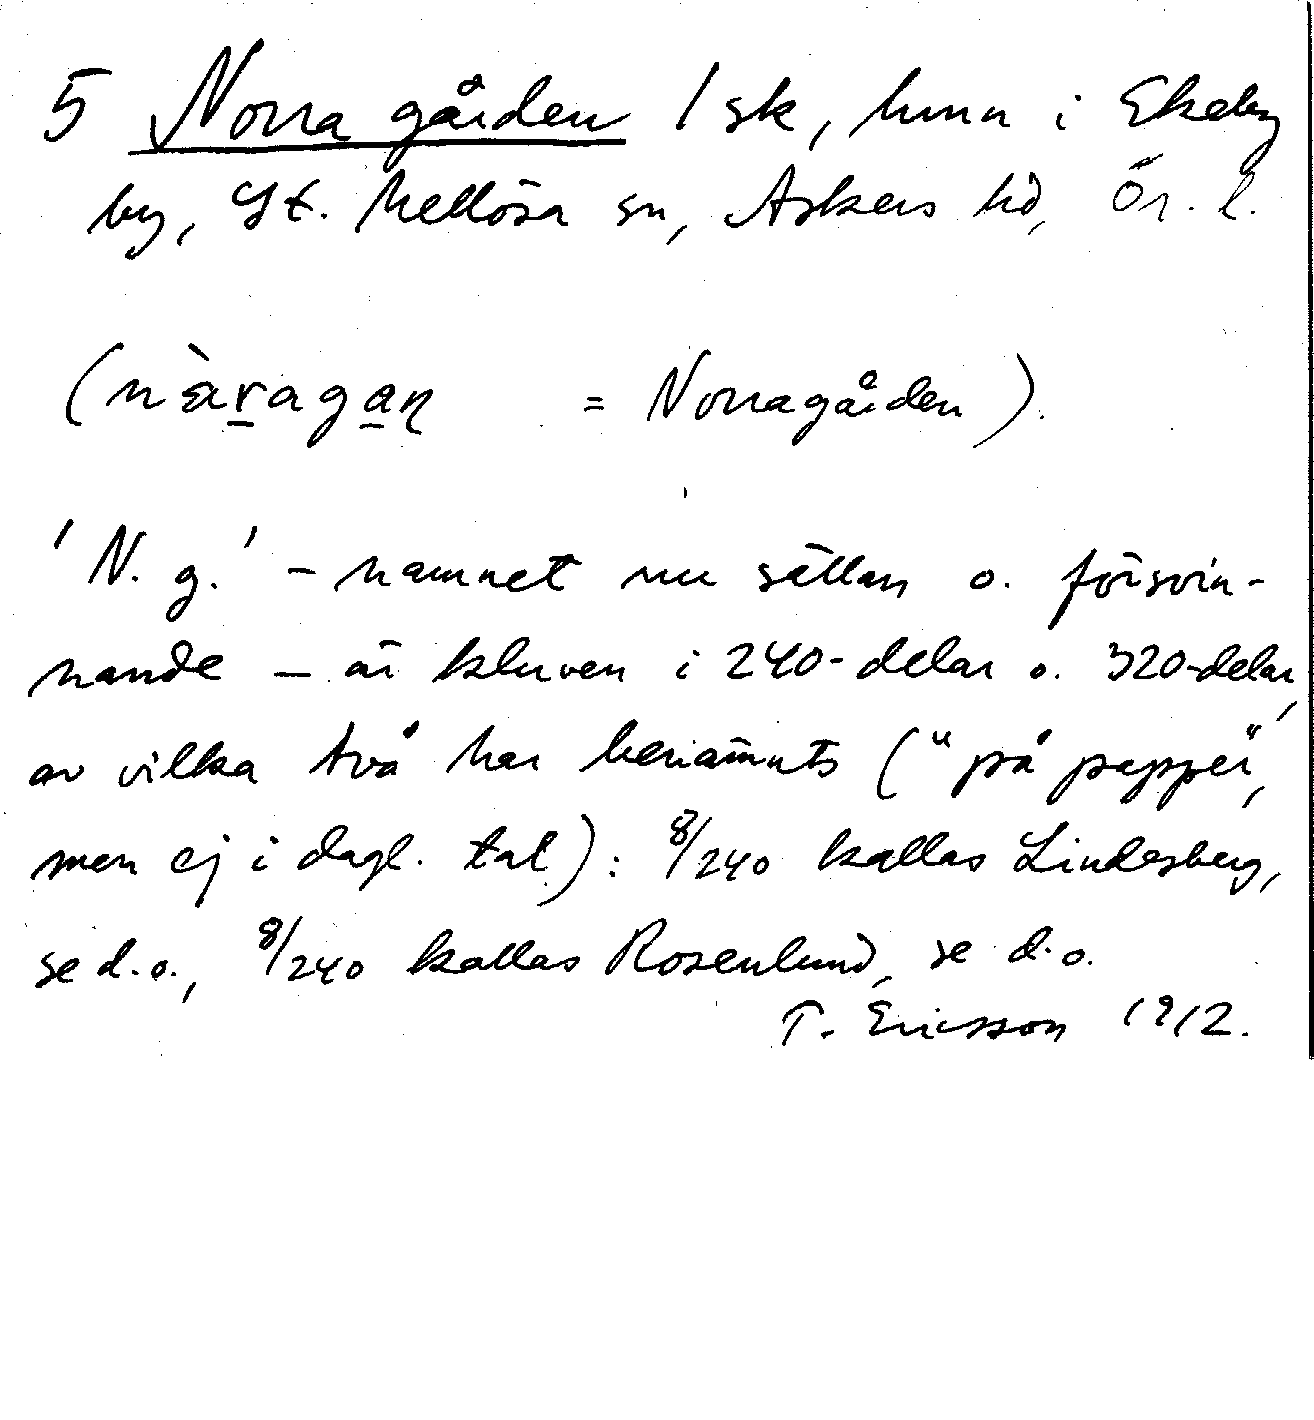 5 Norra gården 1 sk, hmn i Ekeby
by, St. Mellösa sn, Askers hd, Ör. l.
(nàragan = Norragården).
'N. g.' - namnet nu sällan o. försvin-
nande - är kluven i 240-delar o. 320-delar,
av vilka två har benämnts ("på papper",
men ej i dagl. tal): 8/240 kallas Lindesberg,
se d.o., 8/240 kallas Rosenlund, se d.o.
T. Ericsson 1912.